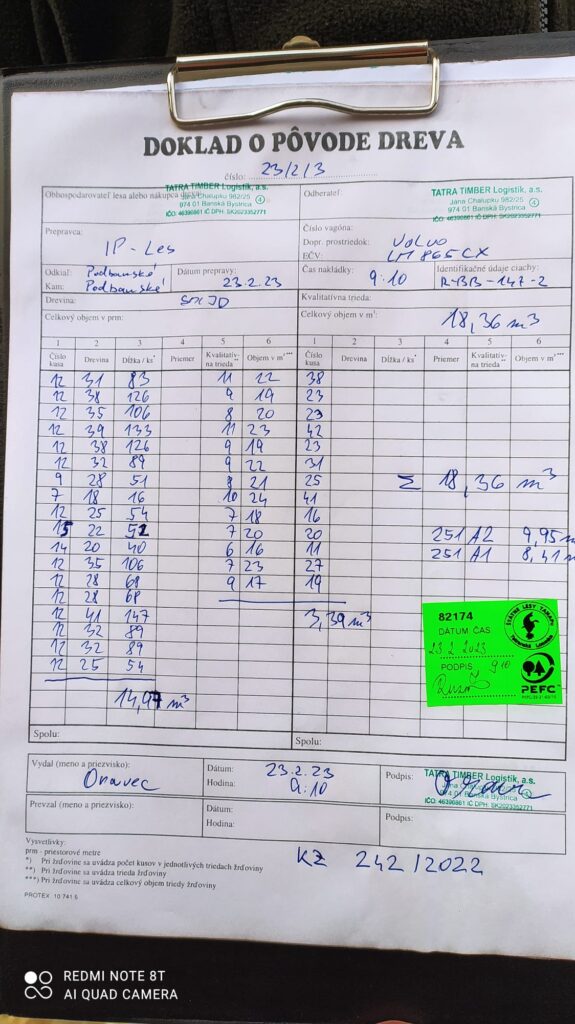 DOKLAD O PÔVODE DREVA
číslo: 23/2/3
Obhospodarovateľ lesa alebo nákupca dreva:
TATRA TIMBER Logistik, a.s.
Jána Chalupku 982/25
974 01 Banská Bystrica
IČO: 46390861 IČ DPH: SK2023352771
Odberateľ:
TATRA TIMBER Logistik, a.s.
Jána Chalupku 982/25
974 01 Banská Bystrica
IČO: 46390861 IČ DPH: SK2023352771
Prepravca:
IP-Les
Číslo vagóna:
Dopr. prostriedok: Volvo
EČV: LM865CX
Odkiaľ: Podbanské
Kam: Podbanské
Dátum prepravy: 23.2.23
Čas nakládky: 9:10
Identifikačné údaje ciachy: R-BB-147-2
Drevina: SM JD
Kvalitatívna trieda:
Celkový objem v prm:
Celkový objem v m³: 18,36 m³
1 2 3 4 5 6 1 2 3 4 5 6
Číslo kusa Drevina Dĺžka / ks* Priemer Kvalitatív- na trieda** Objem v m³*** Číslo kusa Drevina Dĺžka / ks* Priemer Kvalitatív- na trieda** Objem v m³***
12 31 83 11 22 38
12 38 126 9 19 23
12 35 106 8 20 23
12 39 133 11 23 42
12 38 126 9 19 23
12 32 89 9 22 31
9 28 51 8 21 25 Σ 18,36 m³
7 18 16 10 24 41
12 25 54 7 18 16
15 22 52 7 20 20 251 A2 9,95 m
14 20 40 6 16 11 251 A1 8,41 m
12 35 106 7 23 27
12 28 68 9 17 19
12 28 68
12 41 147 3,39 m³
12 32 89
12 32 89
12 25 54
14,97 m³
82174
DÁTUM ČAS
23.2.2023
PODPIS 910
ŠTÁTNE LESY TANAPu
Tatranská Lomnica
PEFC
Spolu:
Spolu:
Vydal (meno a priezvisko):
Oravec
Dátum: 23.2.23
Hodina: 9:10
Podpis:
TATRA TIMBER Logistik, a.s.
Jána Chalupku 982/25
974 01 Banská Bystrica
IČO: 46390861 IČ DPH: SK2023352771
Prevzal (meno a priezvisko):
Dátum:
Hodina:
Podpis:
Vysvetlivky:
prm - priestorové metre
*) Pri žrďovine sa uvádza počet kusov v jednotlivých triedach žrďoviny
**) Pri žrďovine sa uvádza trieda žrďoviny
***) Pri žrďovine sa uvádza celkový objem triedy žrďoviny
PROTEX 10 741 5
KZ 242/2022
REDMI NOTE 8T
AI QUAD CAMERA